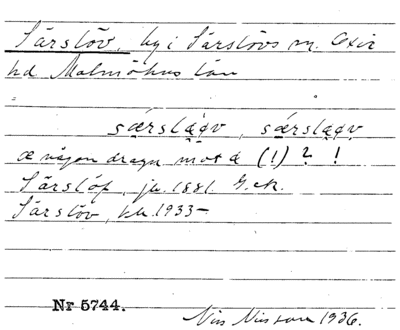 Särslöv, by i Särslövs sn. Oxie
hd Malmöhus län
særslạọv, særslạọv
æ någon dragn mot a (!) ? !
Särslöf, jb. 1881. G.ck.
Särslöv, kb. 1933–
Nr 5744.
Nils Nilsson 1936.